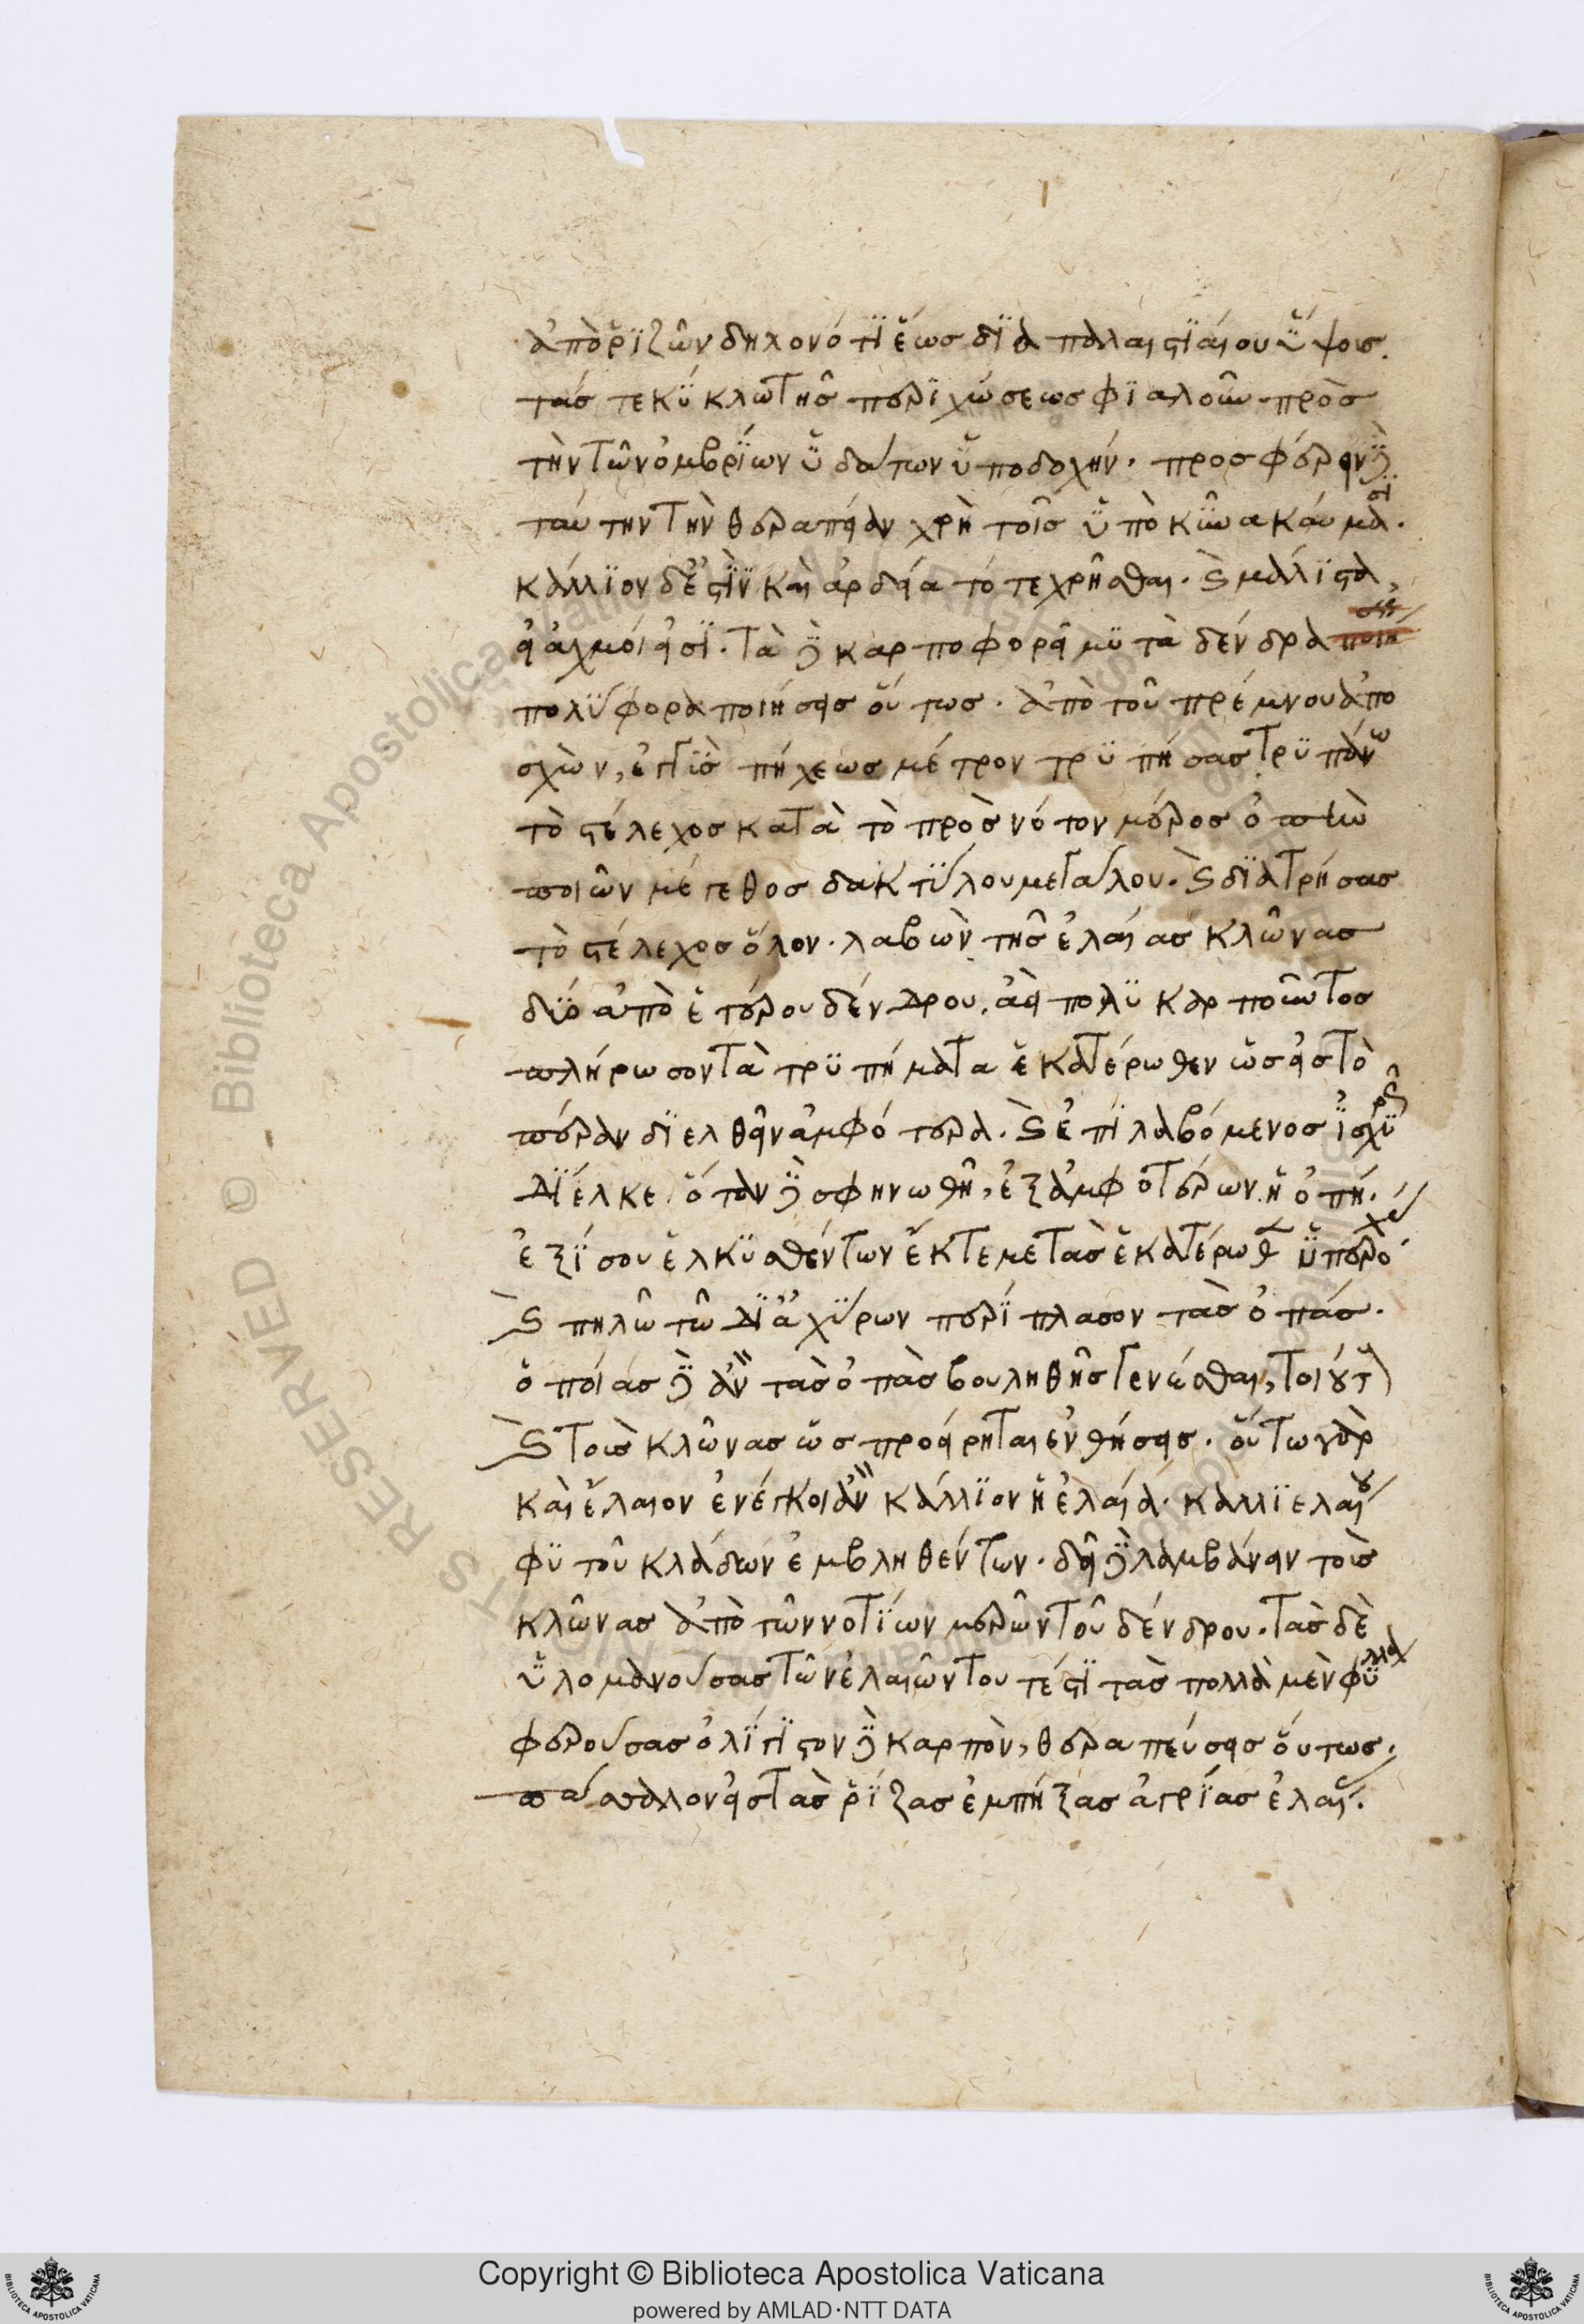 ἀπὸ ῥϊζῶν δηλονότϊ ἕως δϊαπαλαιϛϊαίου ὕψοις.
τάς τε κύκλω τῆσ περϊχώσεωσ φϊαλοῦν πρὸσ
τὴν τῶν ὀμβρΐων ὑδάτων ὑποδοχήν. προσφέρειν δὲ
ταύτην τὴν θεραπείαν χρὴ τοῖσ ὑπὸ κῦνα καύμασϊ.
κάλλϊον δέ ἐϛϊν καὶ ἀρδεία τότε χρῆσθαι. καὶ μάλϊϛα,
εἰ αὐχμοὶ εἰσϊ. Τὰ δὲ καρποφορεῖ μϋτὰ δένδρα ποιη
πολΰφορα ποιήσεισ οὕτωσ. ἀπὸ τοῦ πρέμνου ἀπο
σχὼν, ἐγγὺσ πήχεωσ μέτρον τρϋπήσασ τρϋπάνω
τὸ ϛέλεχοσ κατὰ τὸ πρὸσ νότον μέροσ ὀπὴν
ποιῶν μέγεθοσ δακτΰλου μεγάλου. καὶ δϊατρήσασ
τὸ ϛέλεχοσ ὅλον. λαβὼν τῆσ ἐλαίασ κλῶνασ
δΰο ἀπὸ ἑτέρου δένδρου, ἀεὶ πολϋκαρποῦντοσ
πλήρωσον τὰ τρϋπήματα ἑκατέρωθεν ὡσ εἰσ τὸ
πέραν δϊελθεῖν ἀμφότερα. καὶ ἐπϊλαβόμενοσ ἰσχϋρῶσ
δΐελκε. ὅταν δὲ σφηνωθῆ, ἐξ ἀμφοτέρων ἡ ὀπή.
ἐξΐσου ἑλκϋσθέντων ἔκτεμε τὰσ ἑκατέρωθεν ὑπεροχάσ
καὶ πηλῶ τῶ δϊ᾽ ἀχΰρων περΐπλασον τὰσ ὀπάσ.
ὁποίασ δὲ ἂν τὰσ ὀπὰσ βουληθῆσ γενέσθαι, τοιούτ
καὶ τοὺσ κλῶνασ ὡσ προείρηται ἐνθήσεισ. οὕτω γὰρ
καὶ ἔλαιον ἐνέγκοι ἂν κάλλϊον ἡ ἐλαία. καλλϊελαίου
φϋτοῦ κλάδων ἐμβληθέντων. δεῖ δὲ λαμβάνειν τοὺσ
κλῶνασ ἀπὸ τῶν νοτΐων μερῶν τοῦ δένδρου. τὰσ δὲ
ὑλομανούσασ τῶν ἐλαιῶν τουτέϛϊ τὰσ πολλὰ μὲν φύλλα
φερούσασ ὀλΐγϊϛον δὲ καρπὸν, θεραπεύσεισ οὕτωσ.
πάσσαλον εἰσ τὰσ ῥΐζασ ἐμπήξασ ἀγρΐασ ἐλαί.